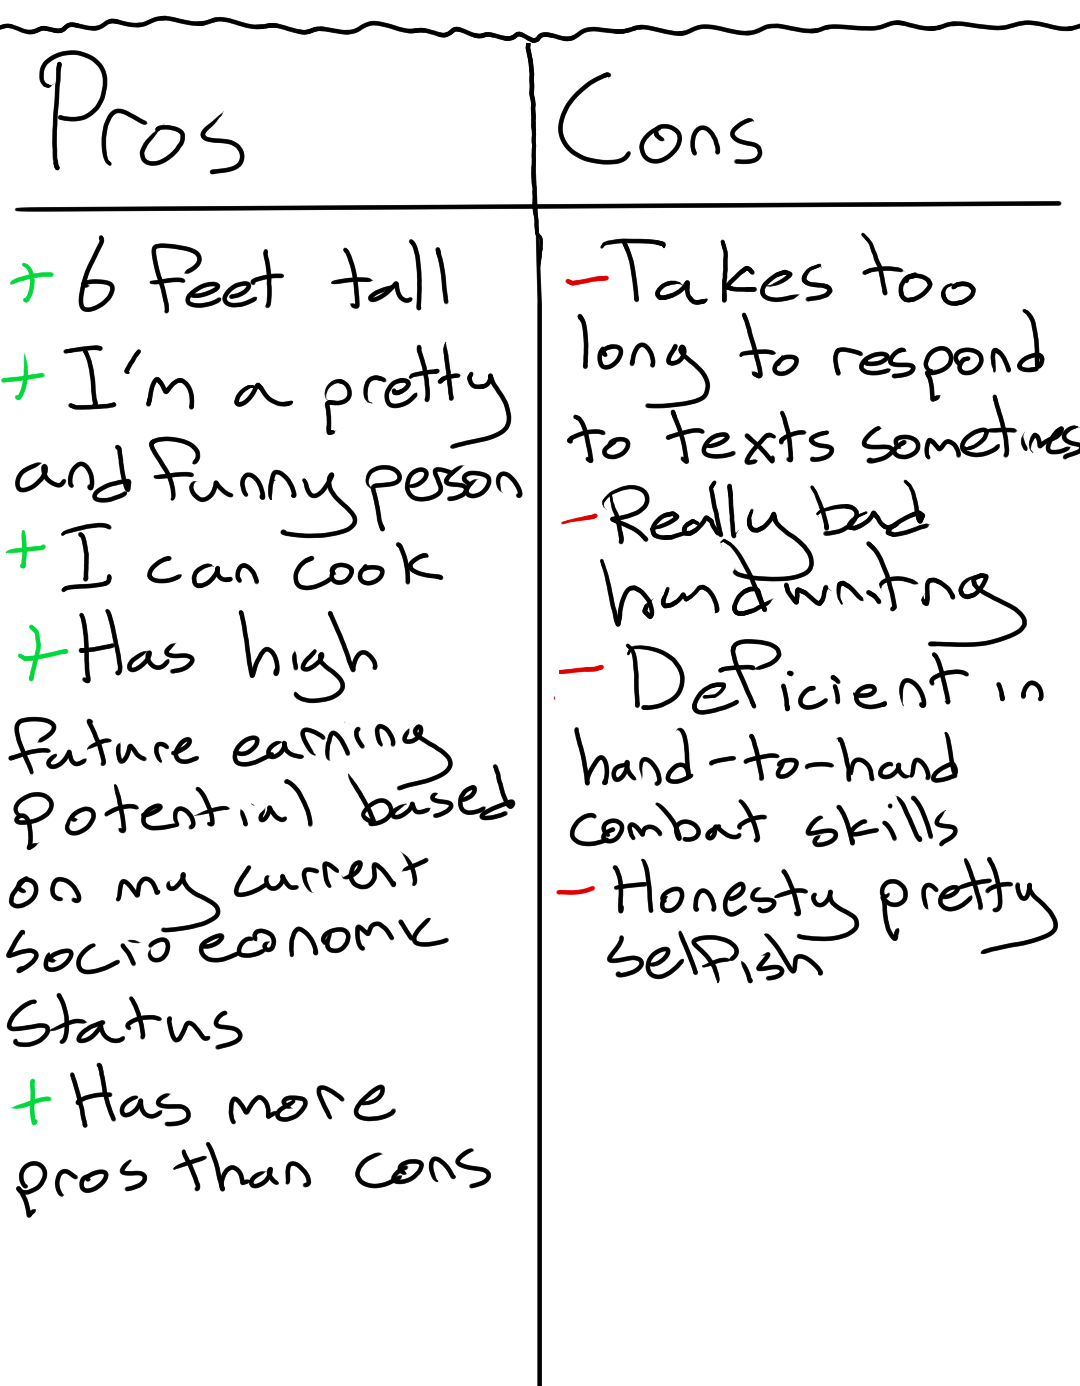 Pros
+ 6 feet tall
+ I'm a pretty
and funny person
+ I can cook
+ Has high
future earning
potential based
on my current
socioeconomic
status
+ Has more
pros than cons
Cons
- Takes too
long to respond
to texts sometimes
- Really bad
handwriting
- Deficient in
hand-to-hand
combat skills
- Honesty pretty
selfish